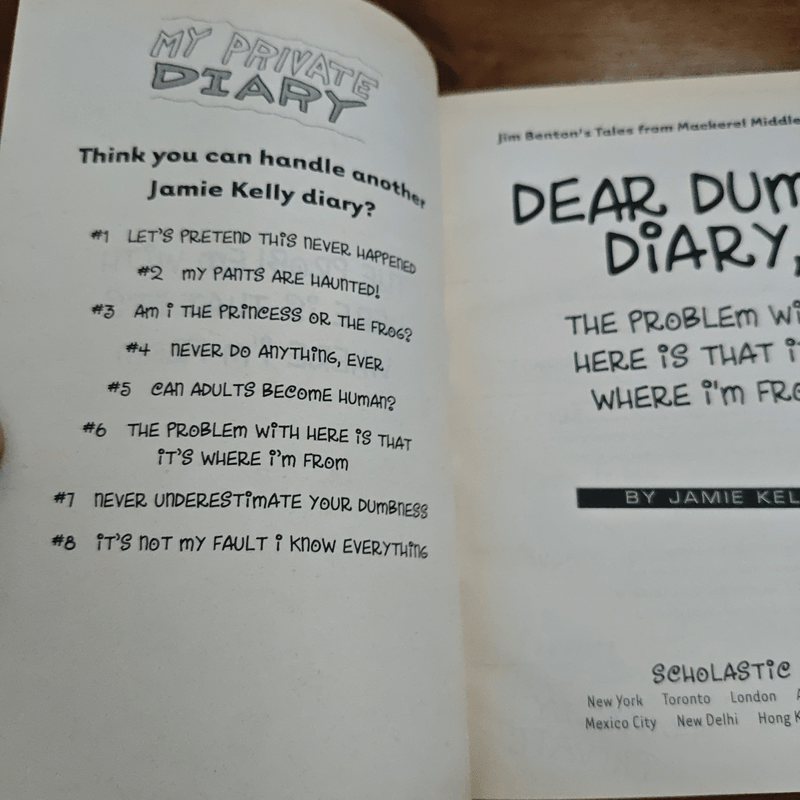 MY PRIVATE
DIARY
Think you can handle another
Jamie Kelly diary?
#1 LET'S PRETEND THiS NEVER HAPPENED
#2 mY PANTS ARE HAUNTED!
#3 Am i THE PRiNCESS OR THE FROG?
#4 NEVER DO ANYTHiNG, EVER
#5 CAN ADULTS BECOmE HUmAN?
#6 THE PROBLEm WiTH HERE iS THAT
iT'S WHERE i'm FROm
#7 NEVER UNDERESTimATE YOUR DUmBNESS
#8 iT'S NOT mY FAULT i KNOW EVERYTHiNG
Jim Benton's Tales from Mackerel Middle
DEAR DUm
DiARY,
THE PROBLEm Wi
HERE iS THAT i
WHERE i'm FRO
BY JAMIE KEL
SCHOLASTiC
New York Toronto London
Mexico City New Delhi Hong K